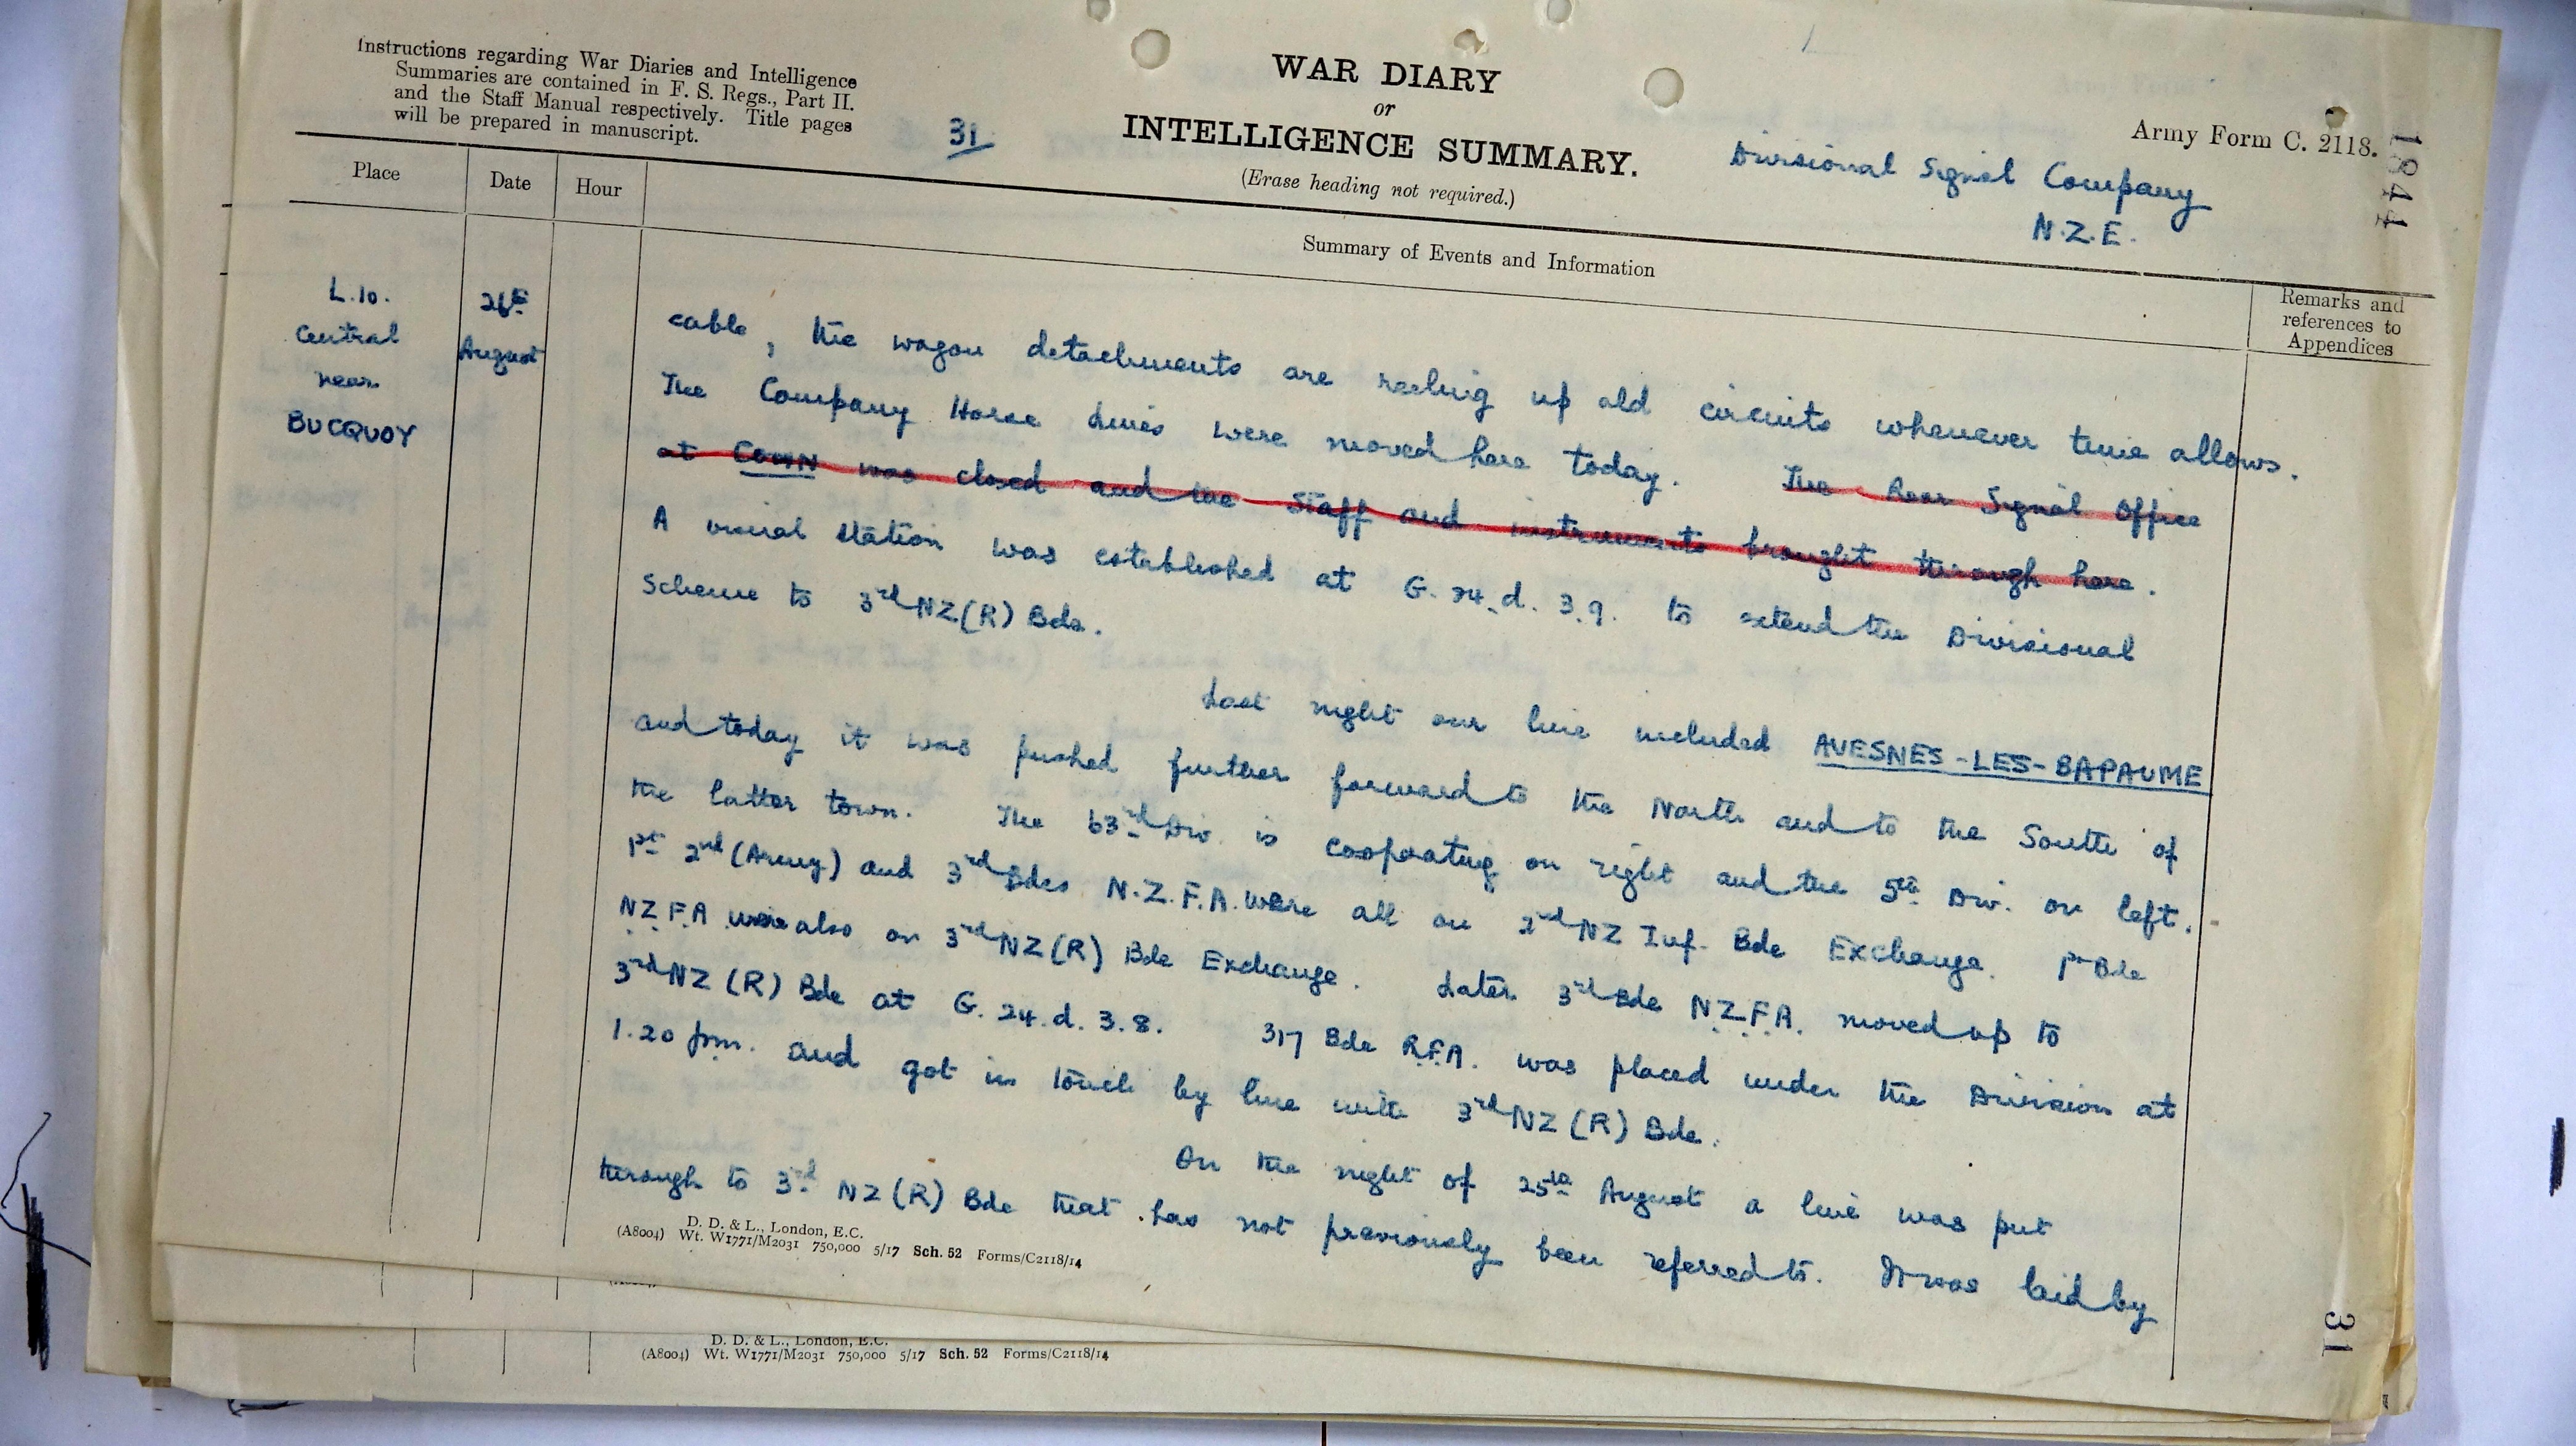 Instructions regarding War Diaries and Intelligence
Summaries are contained in F. S. Regs., Part II.
and the Staff Manual respectively. Title pages
will be prepared in manuscript.
31
WAR DIARY
or
INTELLIGENCE SUMMARY.
(Erase heading not required.)
Army Form C. 2118.
1844
Divisional Signal Company
N.Z.E.
Place
Date
Hour
Summary of Events and Information
Remarks and
references to
Appendices
L.10.
Central
near
BUCQUOY
26th
August
cable, the wagon detachments are reeling up old circuits whenever time allows.
The Company Horse Lines were moved here today. The Rear Signal Office
at COUIN was closed and the Staff and instruments brought through here.
A visual station was established at G. 24.d. 3.9. to extend the Divisional
Scheme to 3rd NZ(R) Bde.
Last night our line included AVESNES-LES-BAPAUME
and today it was pushed further forward to the North and to the South of
the latter town. The 63rd Div. is cooperating on right and the 5th Div. on left.
1st 2nd (Army) and 3rd Bdes N.Z.F.A. were all on 2nd NZ Inf. Bde Exchange. 1st Bde
N.Z.F.A were also on 3rd NZ(R) Bde Exchange. Later 3rd Bde N.Z.F.A. moved up to
3rd NZ (R) Bde at G. 24.d. 3.8. 317 Bde R.F.A. was placed under the Division at
1.20 p.m. and got in touch by line with 3rd NZ (R) Bde.
On the night of 25th August a line was put
through to 3rd NZ (R) Bde that has not previously been referred to. It was laid by
D. D. & L., London, E.C.
(A8004) Wt. W1771/M2031 750,000 5/17 Sch. 52 Forms/C2118/14
31
D. D. & L., London, E.C.
(A8004) Wt. W1771/M2031 750,000 5/17 Sch. 52 Forms/C2118/14